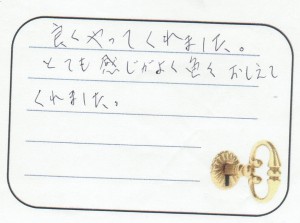 良くやってくれました。
とても感じがよく色々おしえて
くれました。